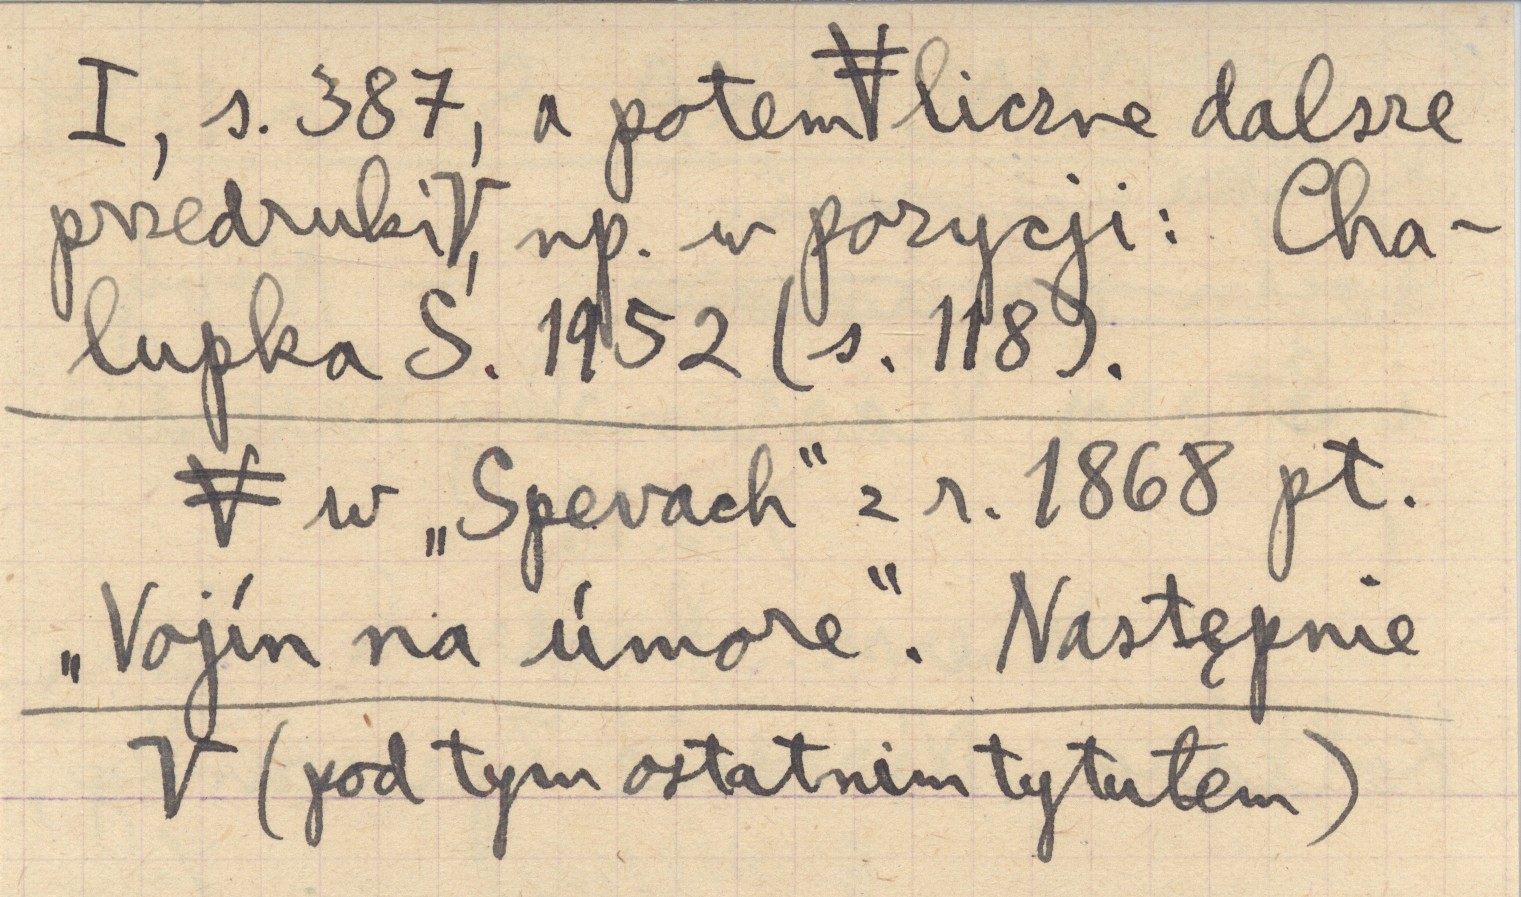 I, s. 387, a potem ∀ liczne dalsze
przedruki V, np. w pozycji: Cha-
lupka S. 1952 (s. 118).
∀ w „Spevach“ z r. 1868 pt.
„Vojín na úmore“. Następnie
V (pod tym ostatnim tytułem)